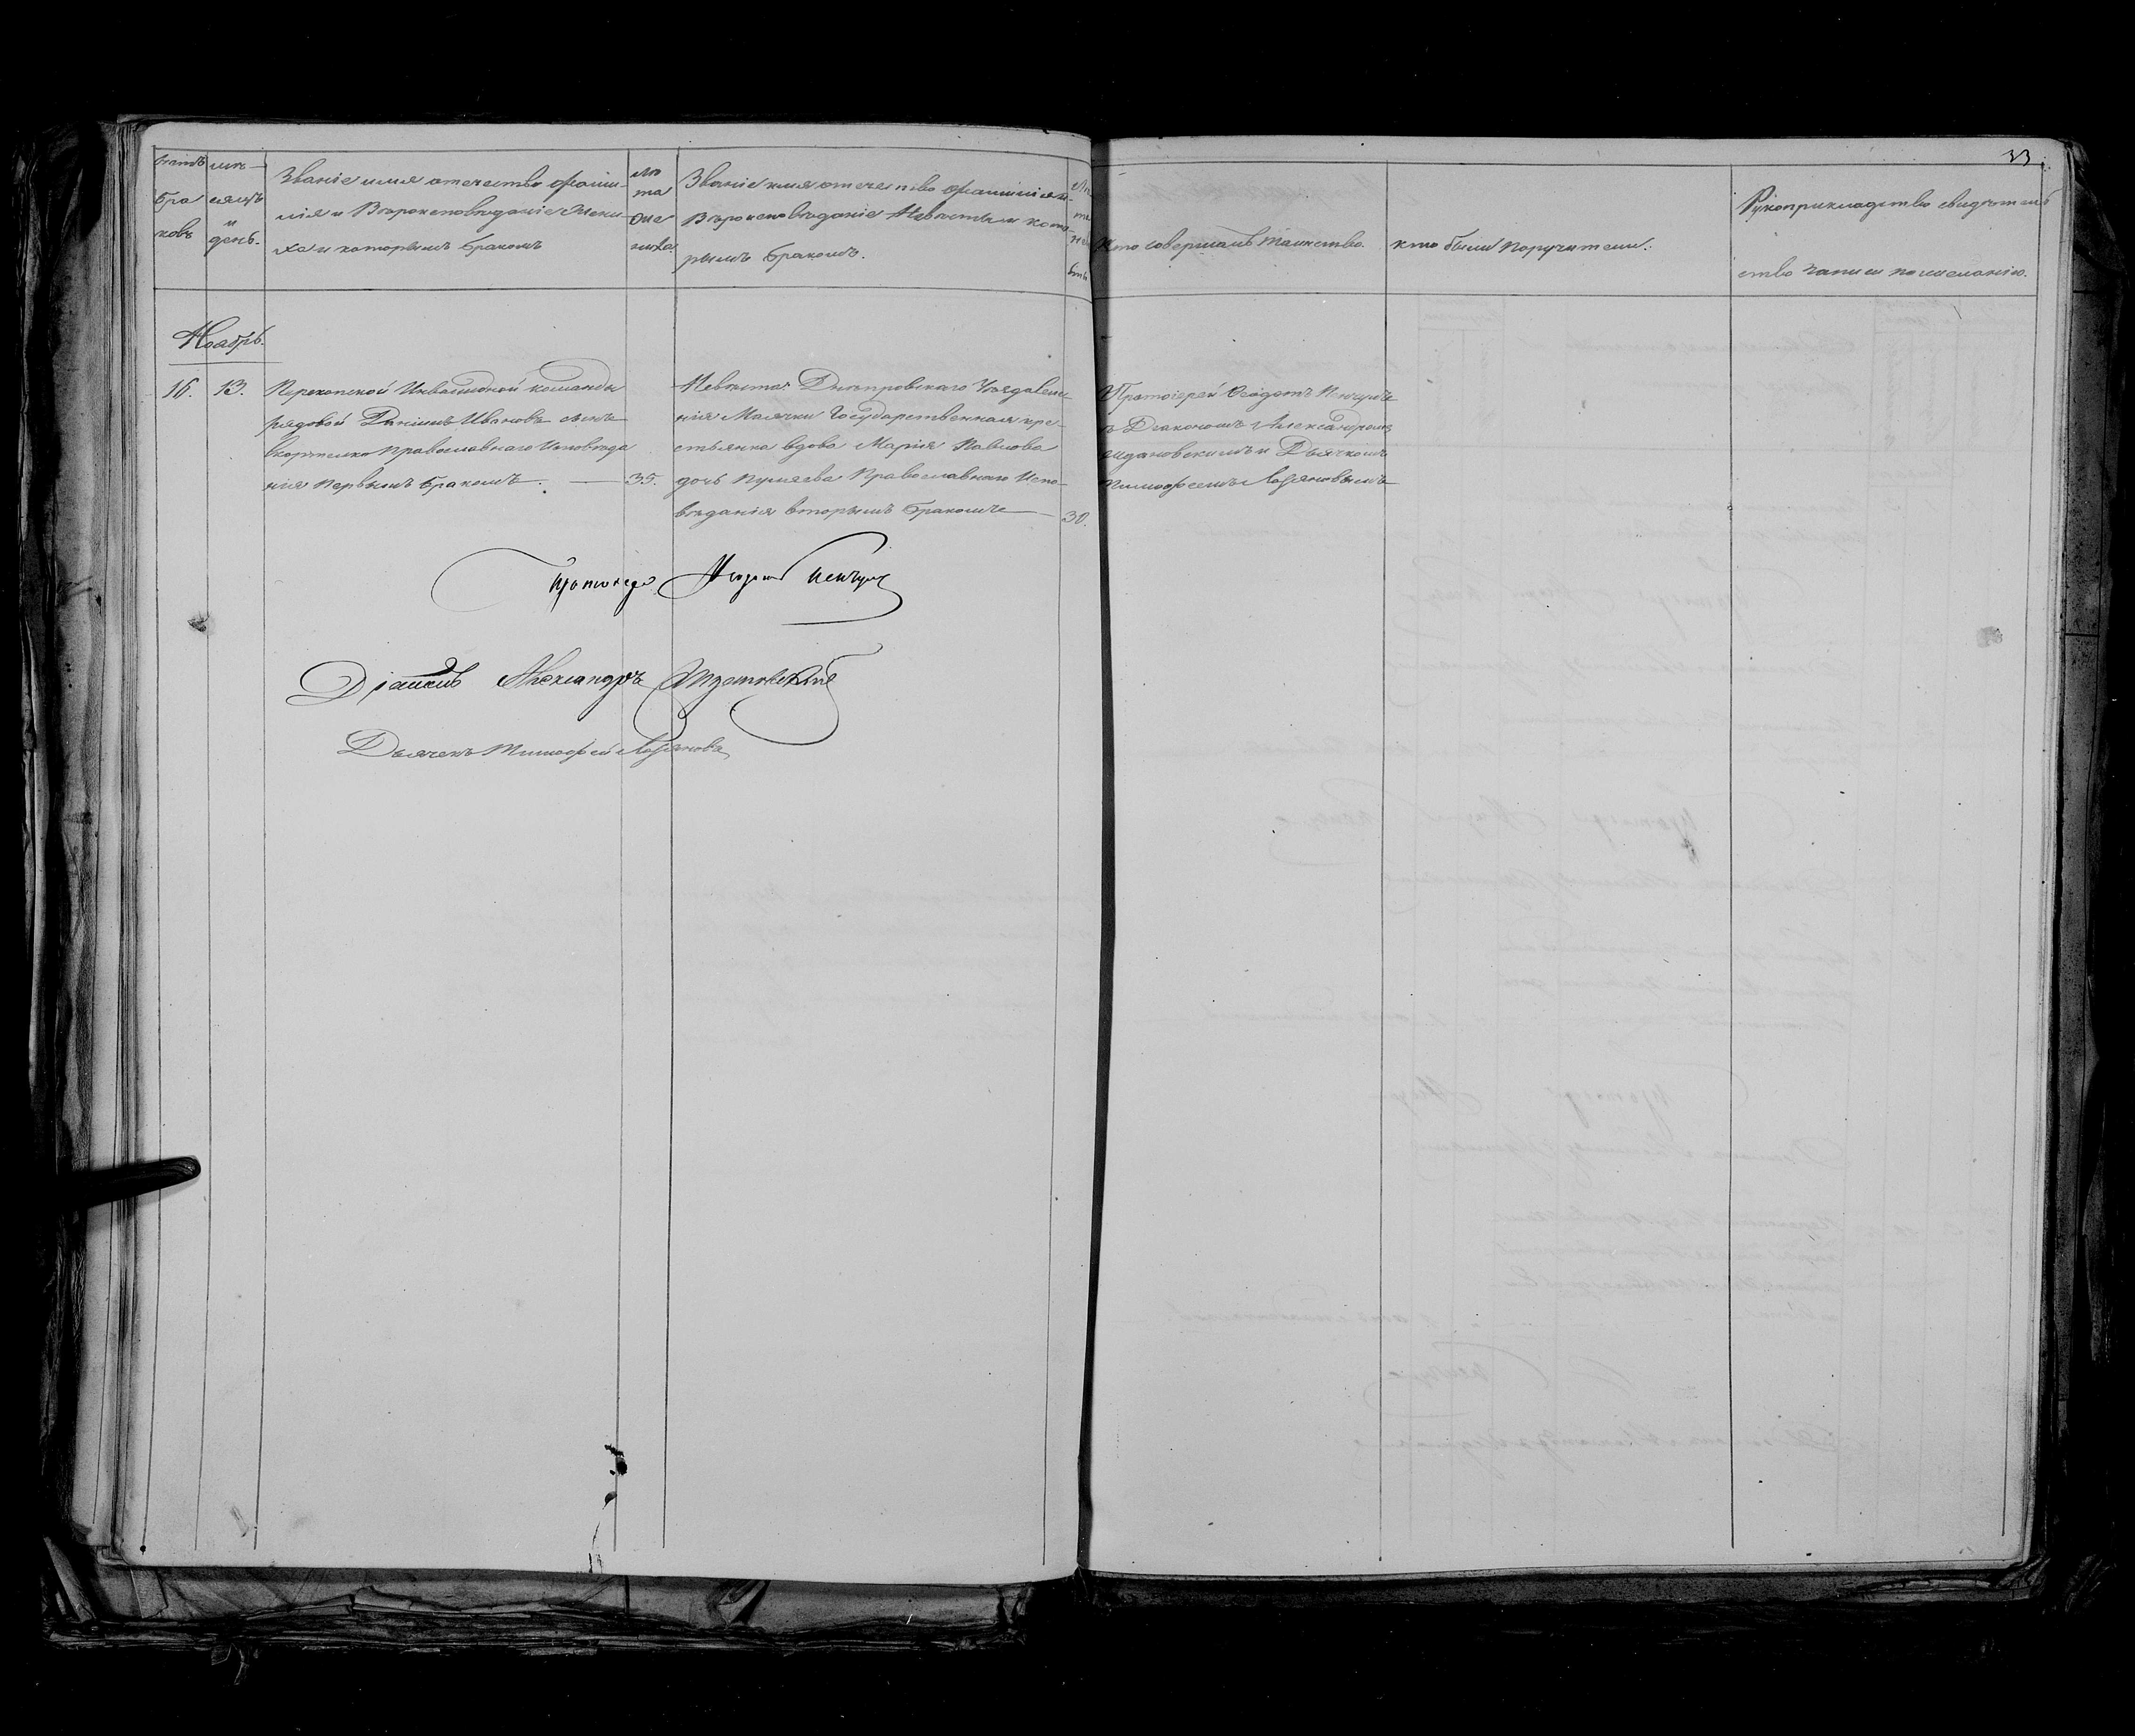 33
Счетъ
бра
ковъ
мѣ-
сяцъ
и
день.
Званіе имя отечество фами-
лія и Вѣроисповѣданіе жени-
ха и которымъ бракомъ
лѣ
та
же
ниха
Званіе имя отечество фамилія и
Вѣроисповѣданіе Невѣсты и кото-
рымъ бракомъ.
Кто совершалъ таинство.
кто были поручители.
Рукоприкладство свидѣтель
ство записи по желанію.
Ноябрь.
16. 13.
Перекопской Инвалидной команды
рядовой Даніилъ Ивановъ сынъ
Православнаго Исповѣда
нія первымъ бракомъ. — 35.
Невѣста Днѣпровскаго Уѣзда селе
нія Маячки Государственная кре-
стьянка вдова Марія Павлова
дочь Православнаго Испо-
вѣданія вторымъ бракомъ — 30.
Протоіерей Ѳеодотъ
съ Діакономъ Александромъ
Ждановскимъ и Дьячкомъ
Тимофеемъ
Протоіерей
Діаконъ Александръ Ждановскій
Дьячекъ Тимофей